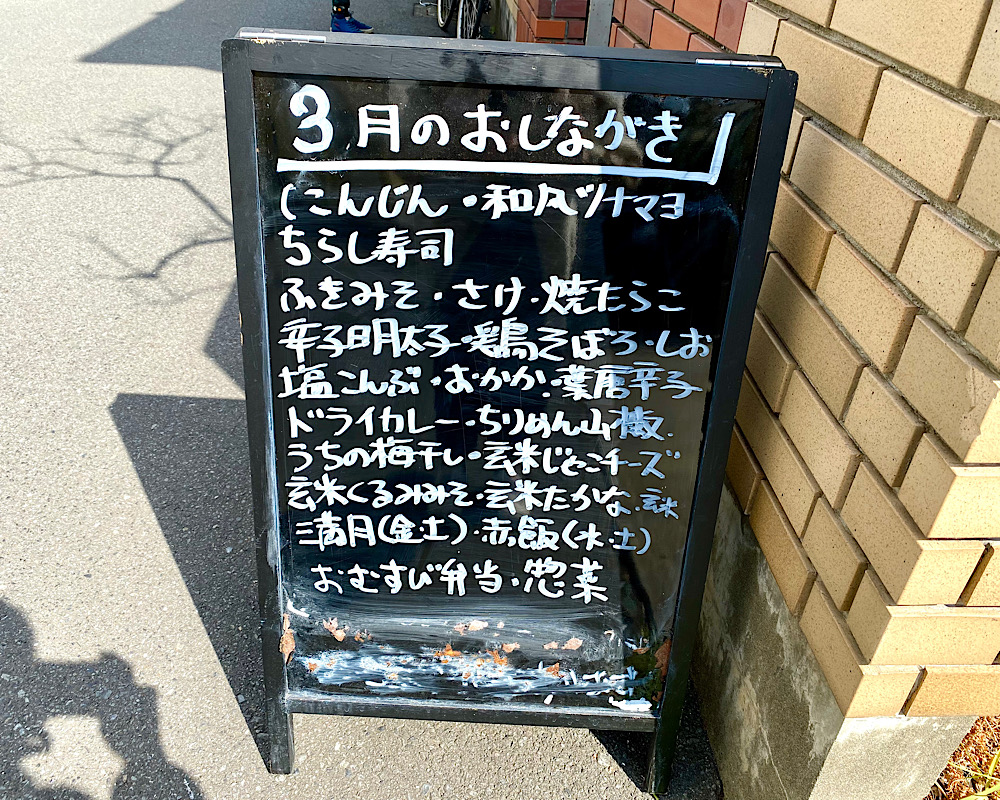 3月のおしながき
にんじん・和風ツナマヨ
ちらし寿司
ふきみそ・さけ・焼たらこ
辛子明太子・鶏そぼろ・しお
塩こんぶ・おかか・葉唐辛子
ドライカレー・ちりめん山椒
うちの梅干し・玄米じゃこチーズ
玄米くるみみそ・玄米たかな・玄米
満月(金・土)・赤飯(水・土)
おむすび弁当・惣菜